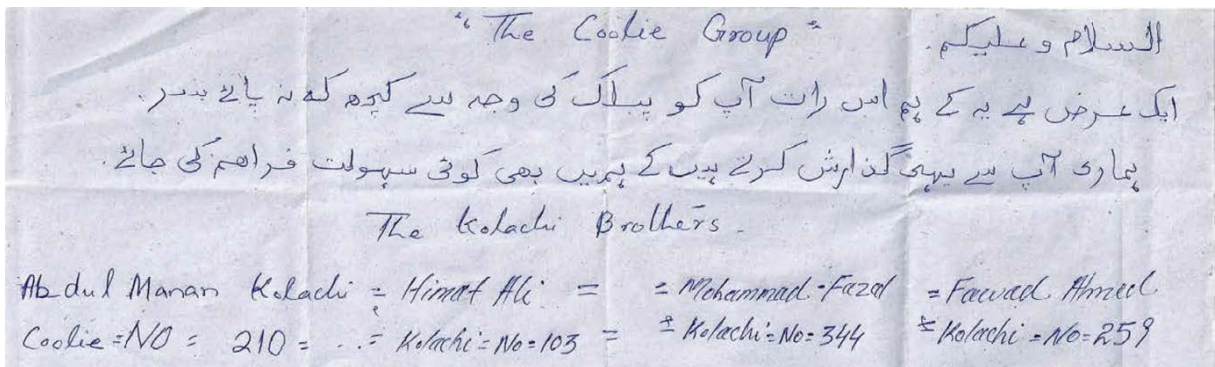 "The Coolie Group"
السلام و علیکم.
ایک عرض ہے یہ کے ہم اس رات آپ کو پبلاک کی وجہ سے کچھ کہہ نہ پائے
ہماری آپ سے یہی گذارش کرتے ہیں کے ہمیں بھی کوئی سہولت فراھم کی جائے.
The Kolachi Brothers.
Abdul Manan Kolachi = Himat Ali = = Mohammad-Fazal = Fawad Ahmed
Coolie=NO = 210 = Kolachi=No=103 = = Kolachi=No=344 = Kolachi=No=259